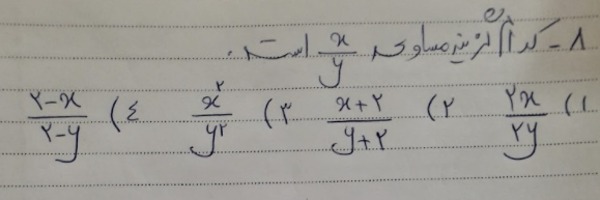 ۸ - کدام گزینه مساوی x/y است.
۱) ۲x/۲y ۲) x+۲/y+۲ ۳) x^۲/y^۲ ۴) ۲-x/۲-y